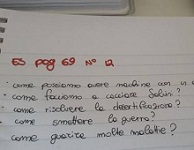 ES pag 69 N° 12
• come possiamo avere machine con
• come facciamo a cacciare Salvini?
• come risolvere la desertificazione?
• come smettere la guerra?
come guarire molte malattie?